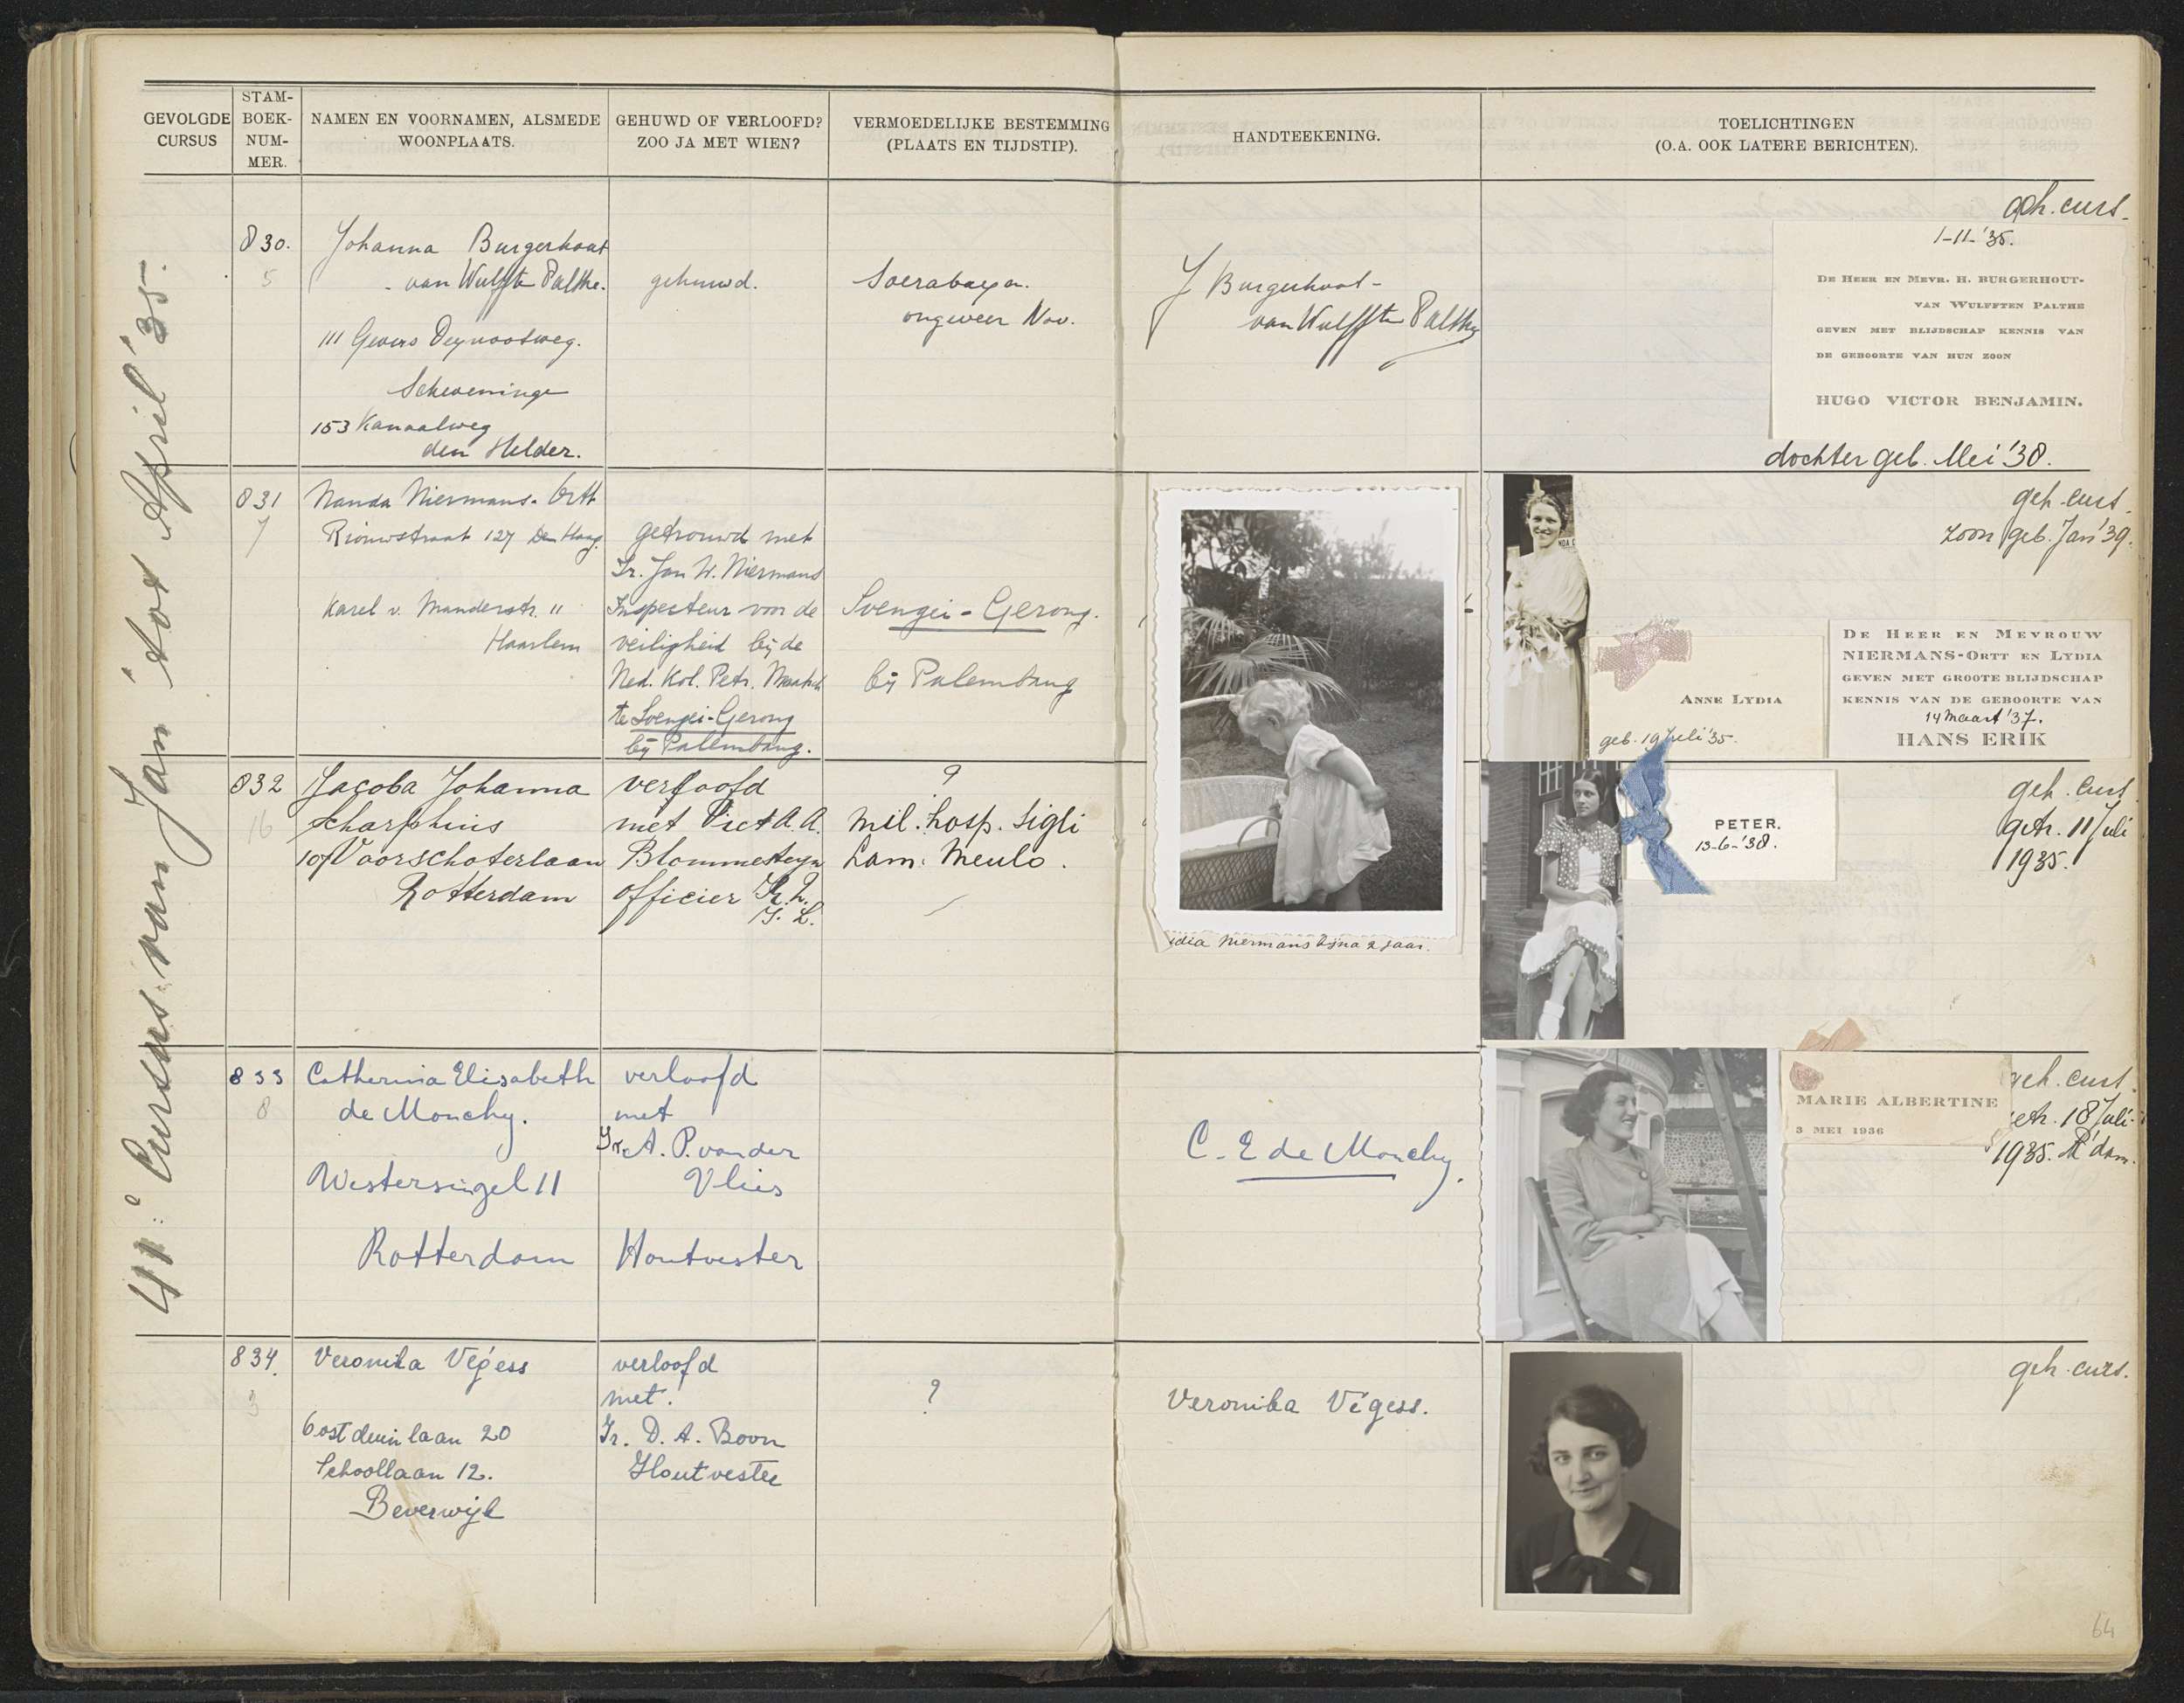 GEVOLGDE
CURSUS
STAM-
BOEK-
NUM-
MER.
NAMEN EN VOORNAMEN, ALSMEDE
WOONPLAATS.
GEHUWD OF VERLOOFD?
ZOO JA MET WIEN?
VERMOEDELIJKE BESTEMMING
(PLAATS EN TIJDSTIP).
HANDTEEKENING.
TOELICHTINGEN
(O.A. OOK LATERE BERICHTEN).
41e Cursus van Jan tot April '35.
830.
5
Johanna Burgerhout
- van Wulfften Palthe.
111 Gevers Deynootweg.
Scheveninge
153 Kanaalweg
den Helder.
gehuwd.
Soerabaya.
ongeveer Nov.
J Burgerhout-
van Wulfften Palthe
geh. curs.
1-11-'35.
DE HEER EN MEVR. H. BURGERHOUT-
VAN WULFFTEN PALTHE
GEVEN MET BLIJDSCHAP KENNIS VAN
DE GEBOORTE VAN HUN ZOON
HUGO VICTOR BENJAMIN.
dochter geb. Mei '38.
831
7
Nanda Niermans-Ortt
Riouwstraat 127 Den Haag.
Karel v. Manderstr. 11
Haarlem
getrouwd met
Ir. Jan W. Niermans
Inspecteur voor de
veiligheid bij de
Ned. Kol. Petr. Maatsch
te Soengei-Gerong
bij Palembang.
Soengei-Gerong.
bij Palembang
idia Niermans bijna 2 jaar.
geh. curs.
zoon geb. Jan '39.
ANNE LYDIA
geb. 19 Juli '35.
DE HEER EN MEVROUW
NIERMANS-ORTT EN LYDIA
GEVEN MET GROOTE BLIJDSCHAP
KENNIS VAN DE GEBOORTE VAN
14 Maart '37.
HANS ERIK
832
16
Jacoba Johanna
Scharphuis
107 Voorschoterlaan
Rotterdam
verloofd
met Vict A.A.
Blommesteyn
officier K.N.
I. L.
?
Mil. hosp. Sigli
Lam. Meulo.
PETER.
13-6-'38.
geh. curs
getr. 11 Juli
1935.
833
8
Catherina Elisabeth
de Monchy.
Westersingel 11
Rotterdam
verloofd
met
Ir. A. P. van der
Vlies
Houtvester
C. E de Monchy.
MARIE ALBERTINE
3 MEI 1936
geh. curs.
getr. 18 Juli
1935. R'dam.
834.
3
Veronika Végess
Oostduinlaan 20
Schoollaan 12.
Beverwijk
verloofd
met.
Ir. D. A. Boon
Houtvester
?
Veronika Végess.
geh. curs.
64